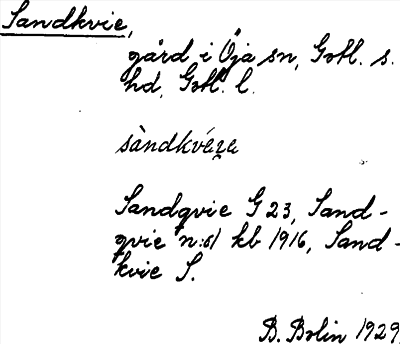 Sandkvie,
gård i Öja sn, Gotl. s.
hd, Gotl. l.
sàndkvéᶒe
Sandqvie G 23, Sand-
qvie n:o1 kb 1916, Sand-
kvie S.
B. Bolin 1929.